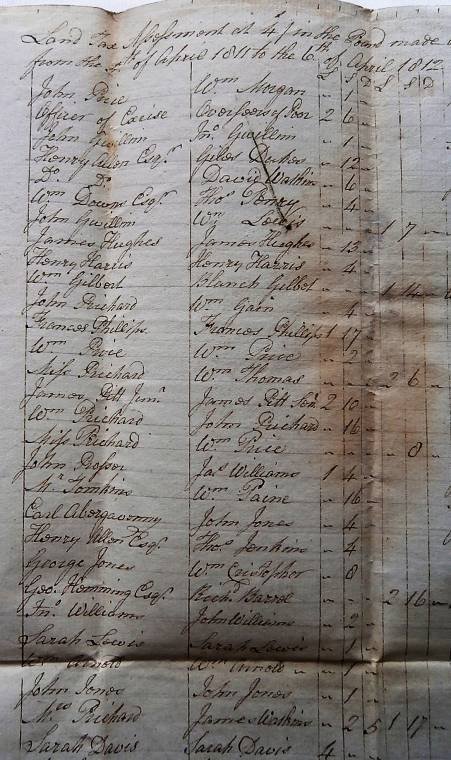 Land Tax Assessment at 4/ in the Pound made
from the 5th of April 1811 to the 6th of April 1812
£ S D £ S D
John Price Wm Morgan - 1 -
Officer of Excise Overseers of Poor 2 6 -
John Gwillim Jno. Gwillim - 1 -
Henry Allen Esqr. Giles - 12 -
Do. Do. David Watkins - 6 -
Wm Downs Esqr. Thos. Penry - 4 -
John Gwillim Wm Lewis - - - 1 7 -
James Hughes James Hughes - 13 -
Henry Harris Henry Harris - 4 -
Wm Gilbert Blanch Gilbet - - - 1 14 -
John Prichard Wm Gain - 4 -
Frances Phillips Frances Phillips 1 17 -
Wm Price Wm Price - 2 -
Miss Prichard Wm Thomas - - - 2 6 -
James Pitt Junr James Pitt Senr. 2 10 -
Wm Prichard John Prichard - 16 -
Miss Prichard Wm Price - - - - 8 -
John Prosser Jas Williams 1 4 -
Mr. Tomkins Wm Paine - 16 -
Earl Abergavenny John Jones - 4 -
Henry Allen Esqr. Thos. Jenkins - 4 -
George Jones Wm Cristopher - 8 -
Geo. Hemming Esqr. Richd Barrel - - - 2 16 -
Jno. Williams John Williams - 2 -
Sarah Lewis Sarah Lewis - 1 -
Wm Arnold Wm Arnold - 1 -
John Jones John Jones - 1 -
Mrs Prichard James Watkins - 2 5 1 17 -
Sarah Davis Sarah Davis 4 -